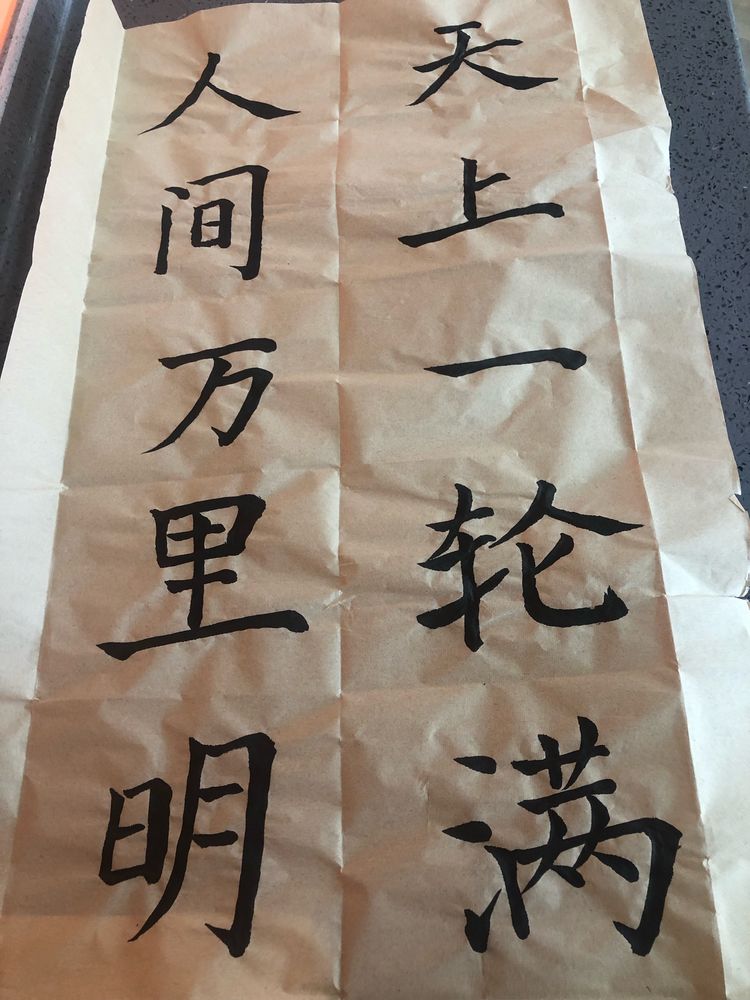 天上一轮满
人间万里明